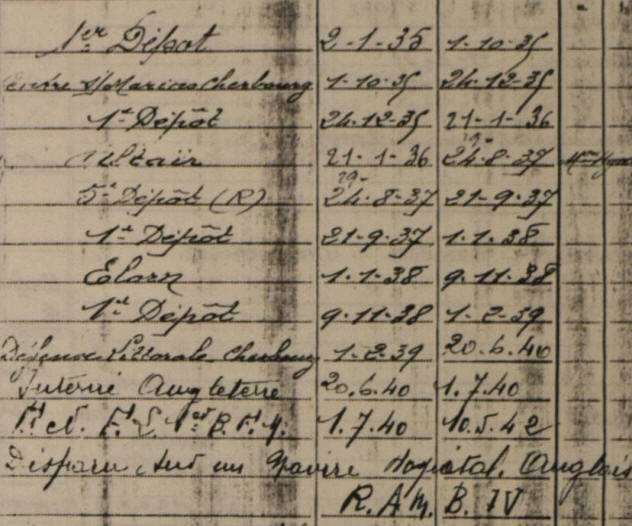 1er Dépot 2-1-35 1-10-35
Centre Marine Cherbourg 1-10-35 24-12-35
1er Dépôt 24.12.35 21-1-36
Altaïr 21-1-36 24.8.37
5e Dépôt (R) 24.8.37 21-9-37
1er Dépôt 21-9.37 1.1.38
Elorn 1-1-38 9.11.38
1er Dépôt 9-11-38 1-2-39
Défense Littorale Cherbourg 1-2-39 20.6.40
Interné Angleterre 20.6.40 1.7.40
F. L. 1er B. F. M. 1.7.40 10.5.42
Disparu sur un Navire Hopital. Anglais
R. A. M. B. IV